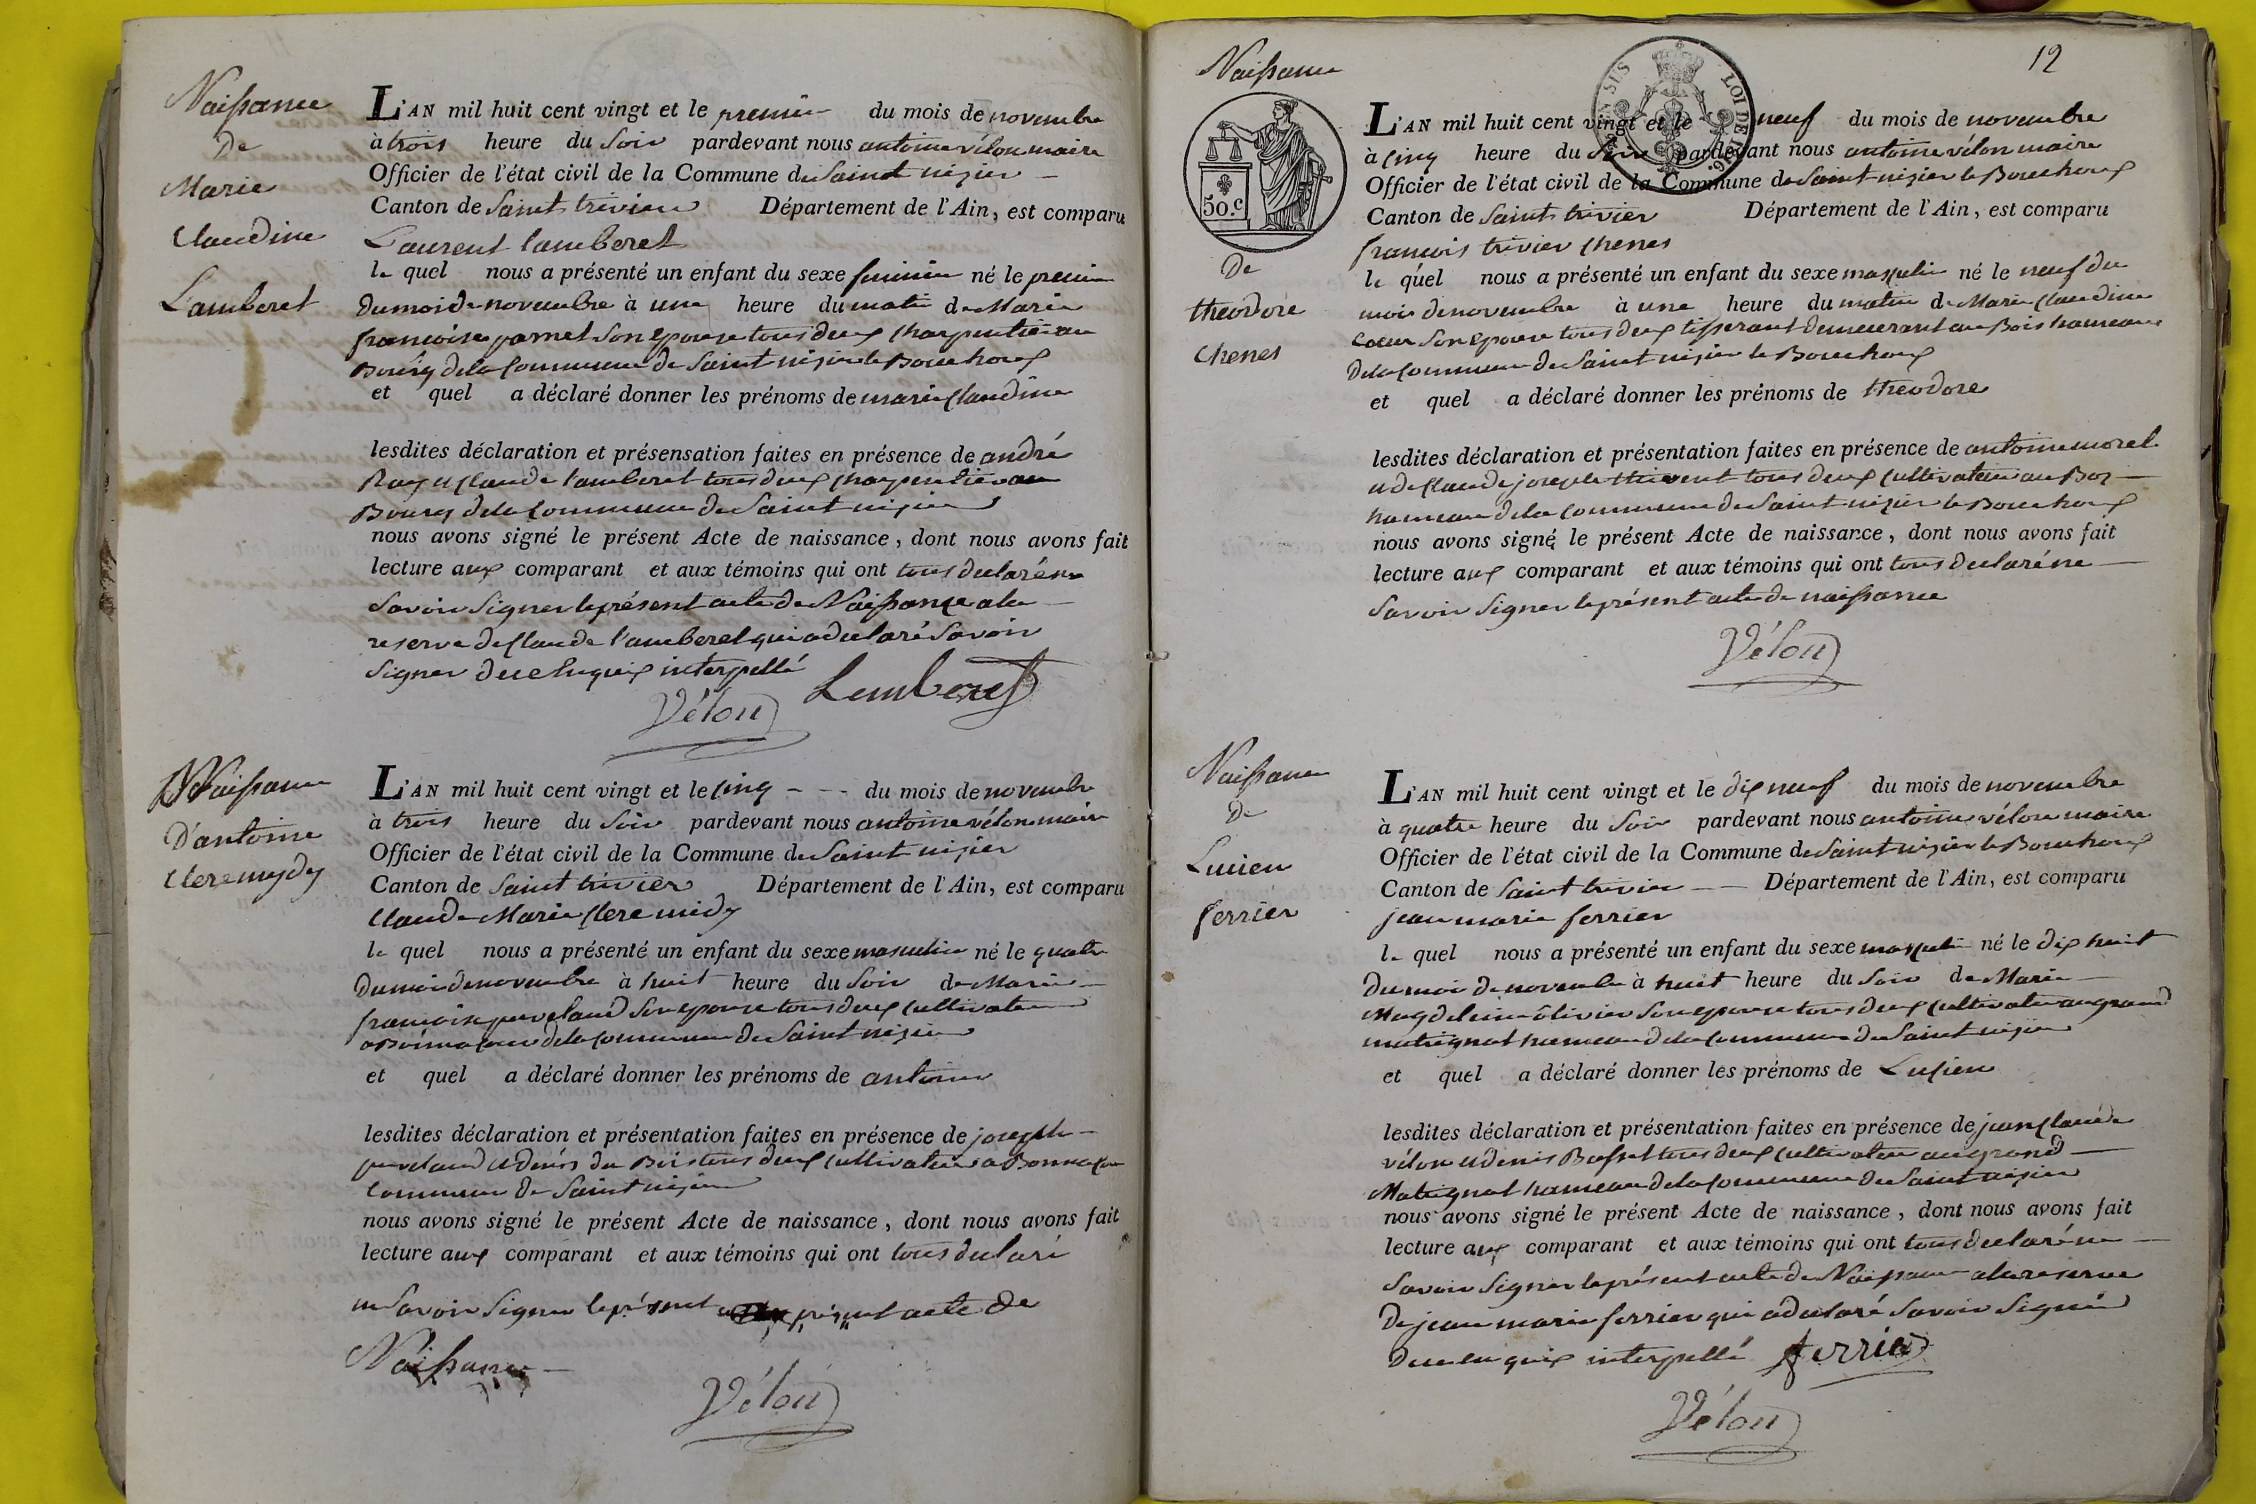 Naissance
De
Marie
Claudine
Lamberet
L'AN mil huit cent vingt et le premier du mois de novembre
à trois heure du soir pardevant nous antoine vélon maire
Officier de l'état civil de la Commune de Saint nizier
Canton de Saint trivier Département de l'Ain, est comparu
Laurent lamberet
le quel nous a présenté un enfant du sexe feminin né le premier
du moi de novembre à une heure du matin de Marie
francoise parnet son epouse tous deux charpentier au
Bourg de la Commune de Saint nizier le Bouchoux
et quel a déclaré donner les prénoms de marie Claudine
lesdites déclaration et présensation faites en présence de andré
Ray et Claude lamberet tous deux charpentier au
Bourg de la Commune de Saint nizier
nous avons signé le présent Acte de naissance, dont nous avons fait
lecture aux comparant et aux témoins qui ont tous declaré ne
savoir signer le présent acte de Naissance a la
reserve de Claude l'amberet qui a declaré savoir
signer de ce enquis interpellé
Vélon Lemberet
Naissance
D'antoine
Cleremydy
L'AN mil huit cent vingt et le cinq - - - du mois de novembre
à trois heure du soir pardevant nous antoine vélon maire
Officier de l'état civil de la Commune de Saint nizier
Canton de Saint trivier Département de l'Ain, est comparu
Claude Marie Cleremidy
le quel nous a présenté un enfant du sexe masculin né le quatre
du moi de novembre à huit heure du soir de Marie
francoise son epouse tous deux cultivateur
de la Commune de Saint nizier
et quel a déclaré donner les prénoms de antoine
lesdites déclaration et présentation faites en présence de joseph
et denis du Bois tous deux cultivateur a
Commune de Saint nizier
nous avons signé le présent Acte de naissance, dont nous avons fait
lecture aux comparant et aux témoins qui ont tous declaré
ne savoir signer le présent présent acte de
Naissance
Vélon
12
Naissance
50.c
De
theodore
Chenes
L'AN mil huit cent vingt et le neuf du mois de novembre
à cinq heure du soir pardevant nous antoine vélon maire
Officier de l'état civil de la Commune de Saint nizier le Bouchoux
Canton de Saint trivier Département de l'Ain, est comparu
francois trivier chenes
le quel nous a présenté un enfant du sexe masculin né le neuf du
mois de novembre à une heure du matin de Marie Claudine
coeur son epouse tous deux tisserant demeurant au Bois hameau
de la Commune de Saint nizier le Bouchoux
et quel a déclaré donner les prénoms de theodore
lesdites déclaration et présentation faites en présence de antoine morel
et de Claude joseph thivent tous deux cultivateur au Boz
hameau de la Commune de Saint nizier le Bouchoux
nous avons signé le présent Acte de naissance, dont nous avons fait
lecture aux comparant et aux témoins qui ont tous declaré ne
savoir signer le présent acte de naissance
Vélon
Naissance
De
Lucien
ferrier
L'AN mil huit cent vingt et le dix neuf du mois de novembre
à quatre heure du soir pardevant nous antoine vélon maire
Officier de l'état civil de la Commune de Saint nizier le Bouchoux
Canton de Saint trivier Département de l'Ain, est comparu
jean marie ferrier
le quel nous a présenté un enfant du sexe masculin né le dix huit
du moi de novembre à huit heure du soir de Marie
Magdeleine olivier son epouse tous deux cultivateur au grand
matrignat hameau de la Commune de Saint nizier
et quel a déclaré donner les prénoms de Lucien
lesdites déclaration et présentation faites en présence de jean Claude
vélon et denis Buffet tous deux cultivateur au grand
Matrignat hameau de la Commune de Saint nizier
nous avons signé le présent Acte de naissance, dont nous avons fait
lecture aux comparant et aux témoins qui ont tous declaré ne
savoir signer le présent acte de Naissance a la reserve
De jean marie ferrier qui a declaré savoir signer
De ce enquis interpellé ferrier
Vélon